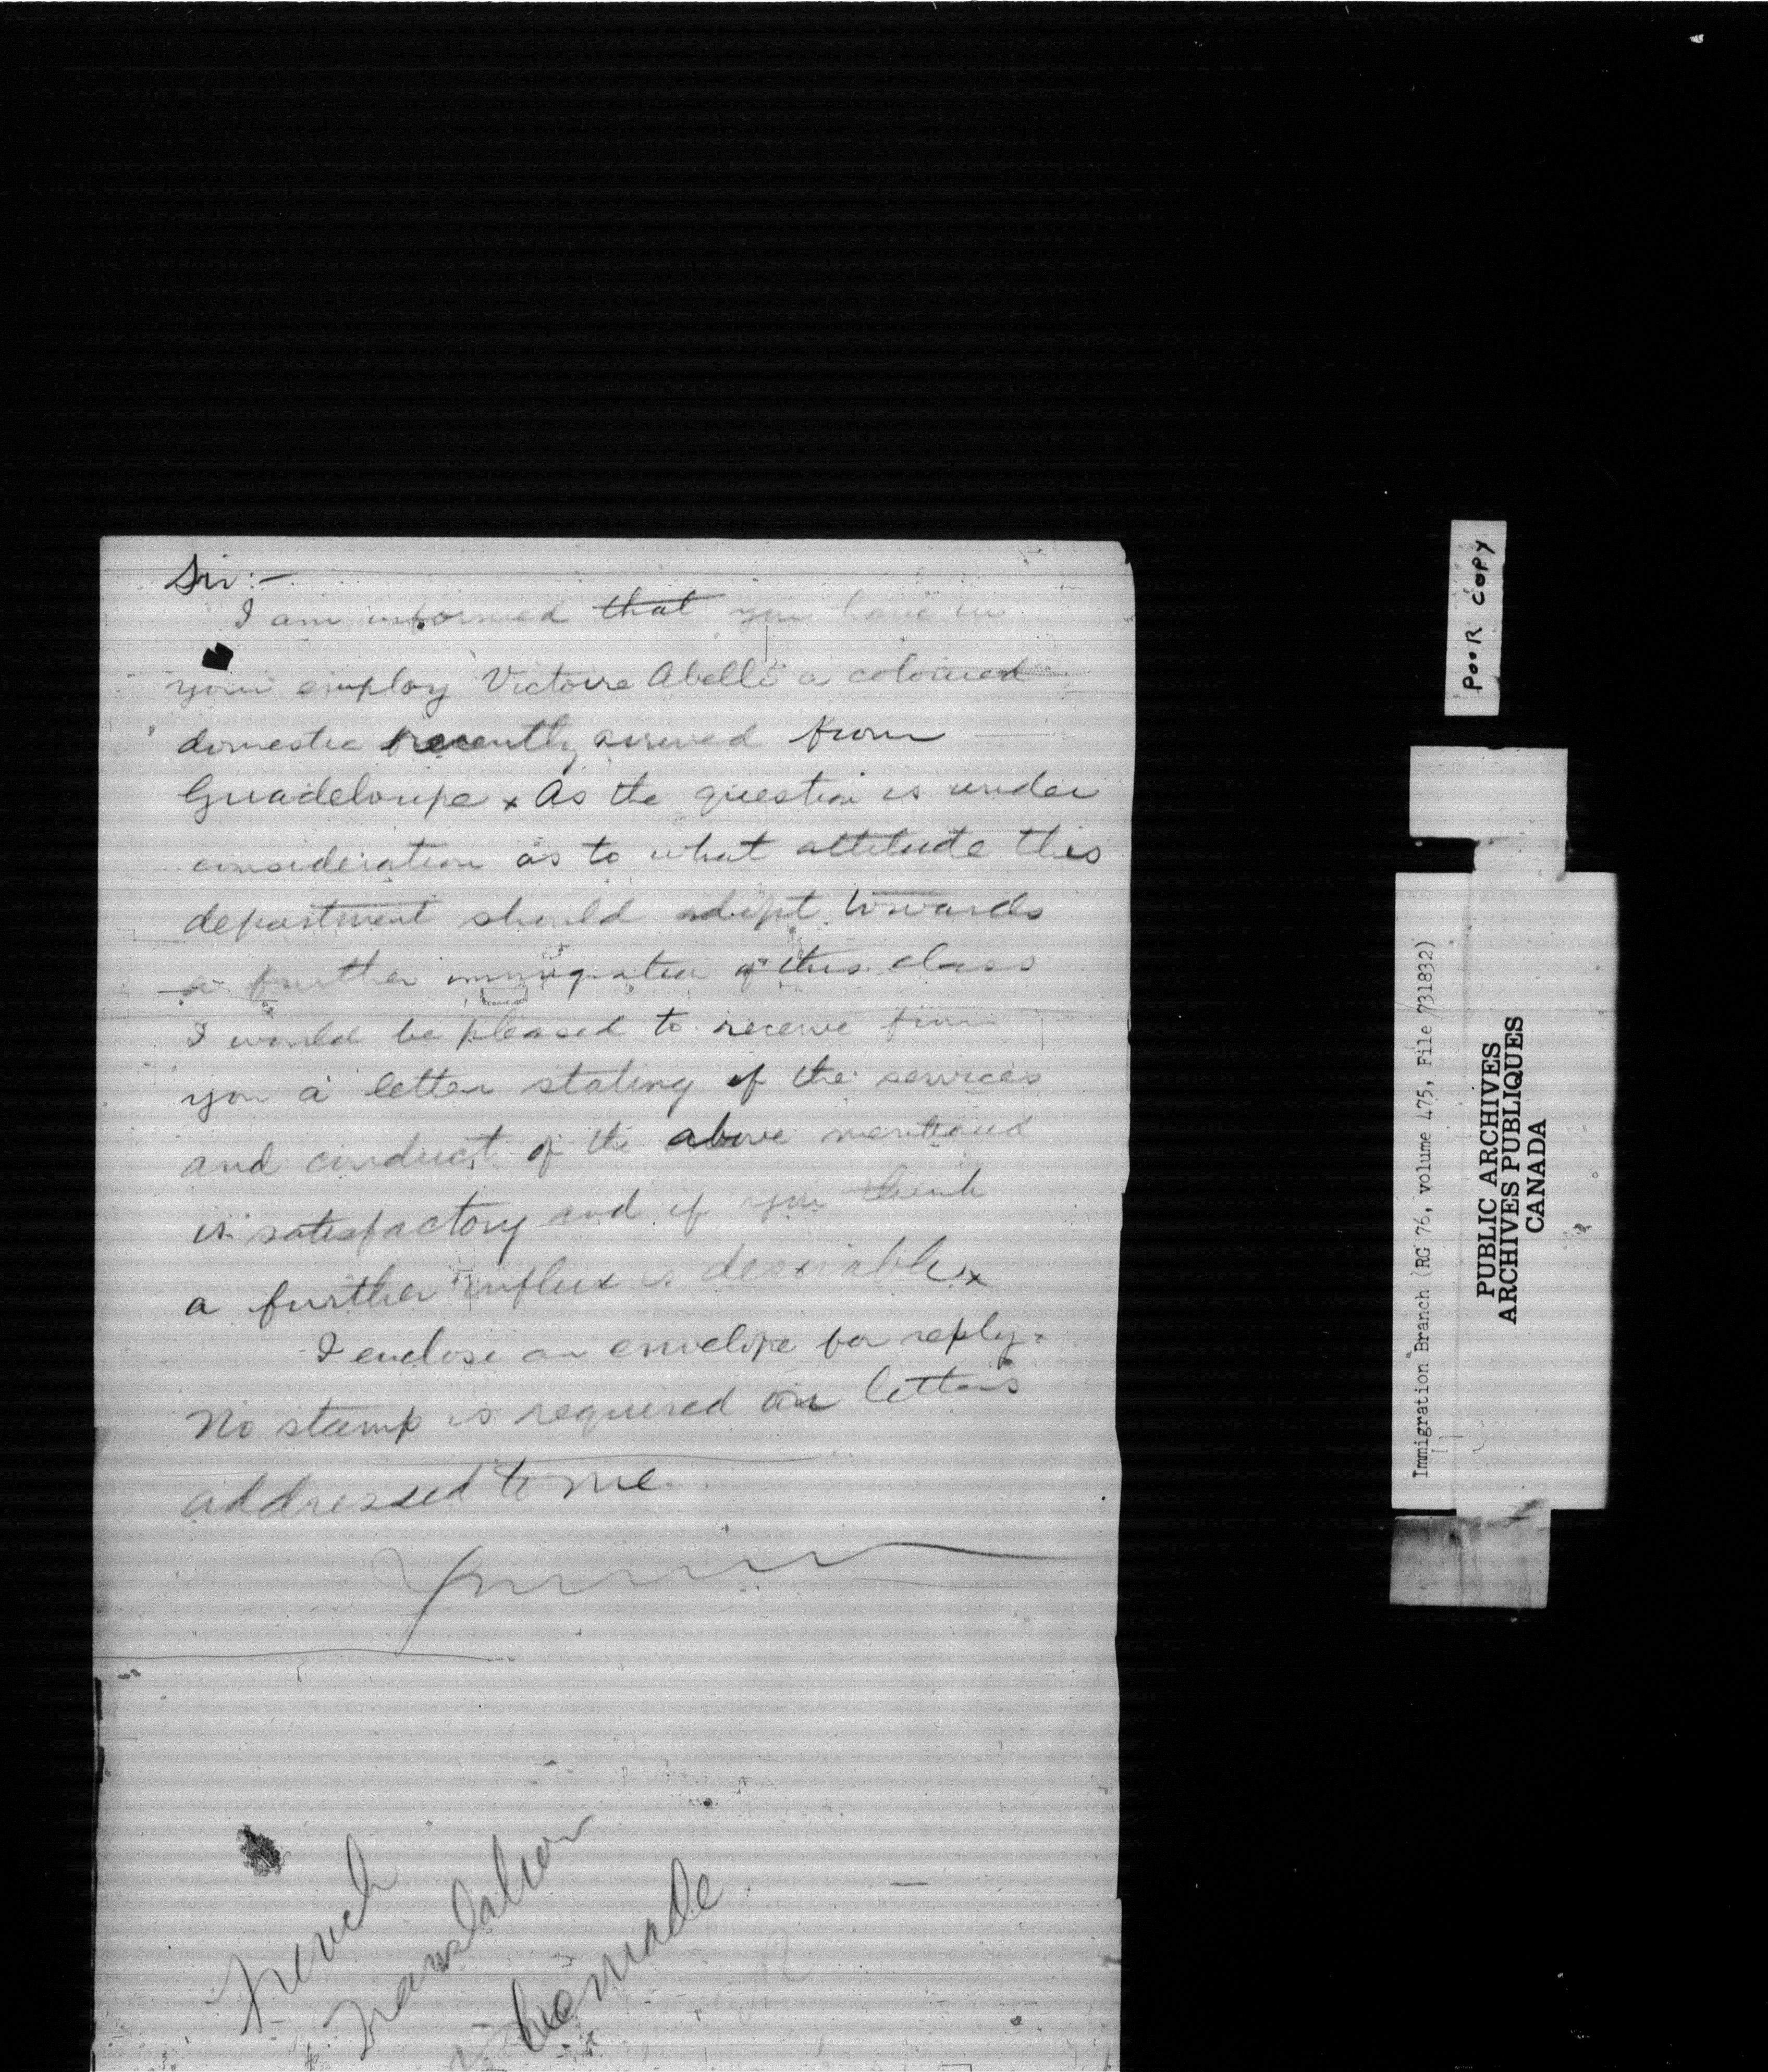 Sir:-
I am informed that you have in
your employ Victoire Abelli a coloured
domestic recently arrived from
Guadeloupe x As the question is under
consideration as to what attitude this
department should adopt towards
a further immigration of this class
I would be pleased to receive from
you a letter stating if the services
and conduct of the above mentioned
is satisfactory and if you think
a further influx is desirable x
I enclose an envelope for reply x
No stamp is required on letters
addressed to me.
French
Translation
be made
POOR COPY
Immigration Branch (RG 76, volume 475, File 731832)
PUBLIC ARCHIVES
ARCHIVES PUBLIQUES
CANADA